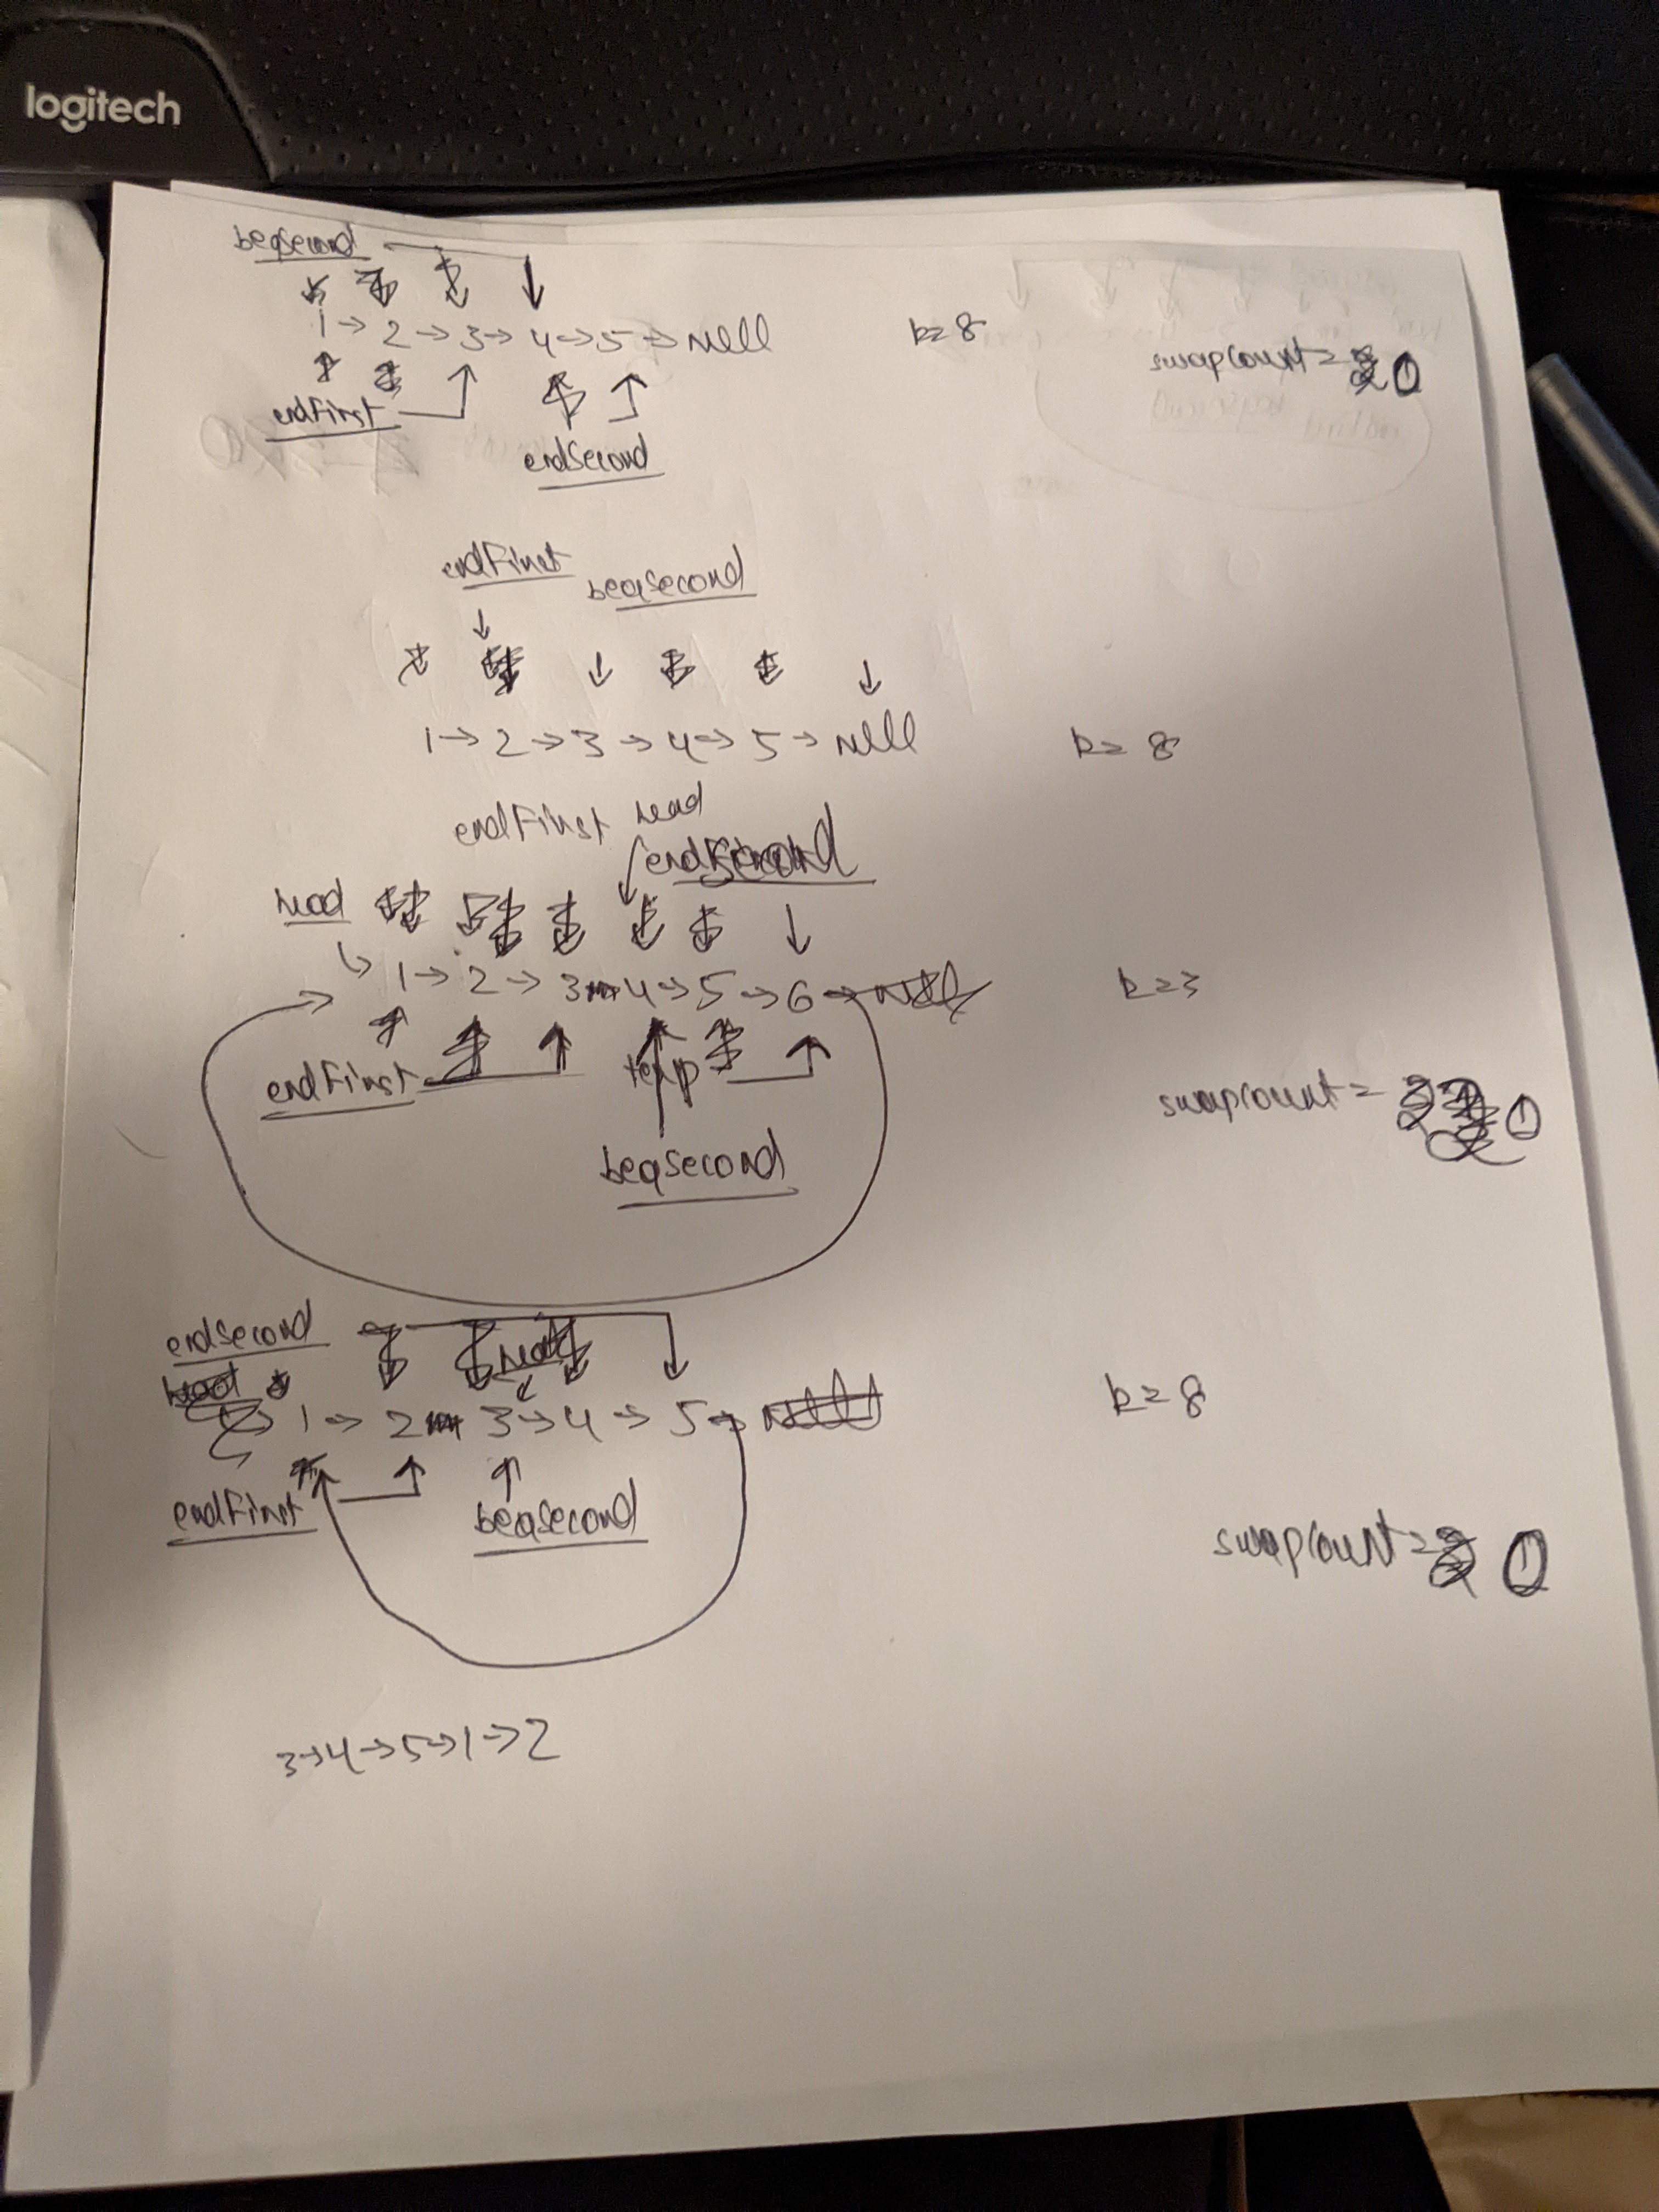 logitech
begSecond
1 → 2 → 3 → 4 → 5 → null
k= 8
swapcount = 1
endFirst
endSecond
endFirst
begSecond
1 → 2 → 3 → 4 → 5 → null
k= 8
endFirst head
head
1 → 2 → 3 4 → 5 → 6 → null
k=3
endFirst
temp
swapcount = 1
begSecond
endSecond
head
1 → 2 3 → 4 → 5 → null
k= 8
endFirst
begSecond
swapcount = 1
3→4→5→1→2